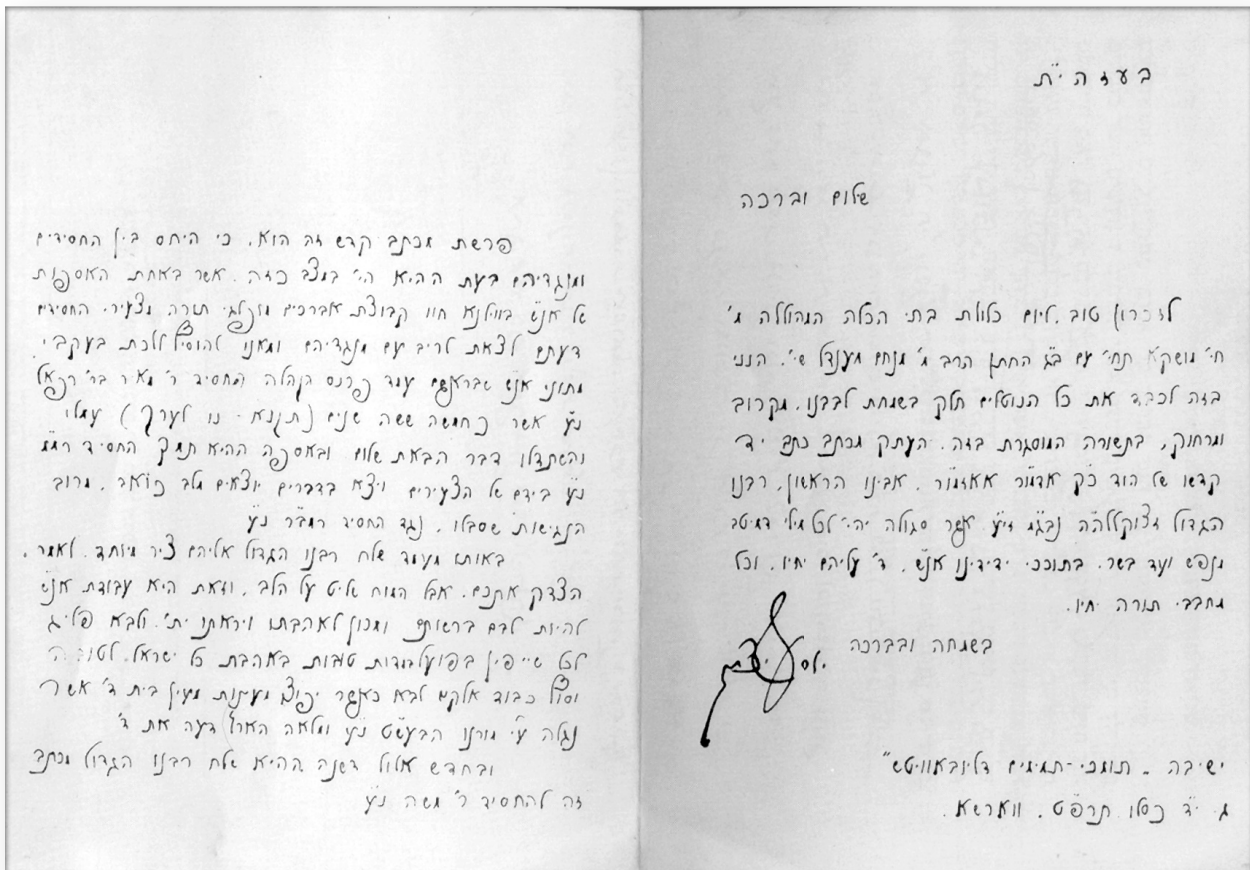 בעזה״ת
שלום וברכה
לזכרון טוב, ליום כלולת בתי הכלה המהוללה מ׳
חי׳ מושקא תחי׳ עם ב״ג החתן הרב מ׳ מנחם מענדל שי׳, הנני
בזה לכבד את כל הנוטלים חלק בשמחת לבבנו, מקרוב
ומרחוק, בתשורה המוסגרת בזה, העתק מכתב כתב יד
קדשו של הוד כ״ק אדמו״ר אאזמו״ר, אבינו הראשון, רבנו
הגדול זצוקללה״ה נבג״מ זי״ע אשר סגולה יהי׳ לכל מילי דמיטב
מנפש ועד בשר, בתוככי ידידינו אנ״ש, ד׳ עליהם יחיו, וכל
מחבבי תורה יחיו.
בשמחה ובברכה
יוסף יצחק
ישיבה „תומכי-תמימים דליובאוויטש״
ג׳ י״ד כסלו תרפ״ט, ווארשא.
פרשת מכתב קדש זה הוא, כי היחס בין החסידים
ומנגדיהם בעת ההיא הי׳ במצב כזה, אשר באחת האספות
של אנ״ש בווילנא חוו קבוצת אברכים מופלגי תורה מצעירי החסידים
דעתם לצאת לריב עם מנגדיהם ומאנו להוסיף ללכת בעקבי
מתוני אנ״ש שבראשם עמד פרנס הקהלה החסיד ר׳ מאיר בר׳ רפאל
נ״ע אשר כחמשה ששה שנים (תקנ״א - נו לערך) עמלו
והשתדלו דבר הבאת שלום ובאספה ההיא תמך החסיד
נ״ע בידם של הצעירים ויצא בדברים יוצאים מלב כואב, מרוב
הנגישות שסבלו, נגד החסיד רמב״ר נ״ע
באותו מעמד שלח רבנו הגדול אליהם ציר מיוחד, לאמר,
הצדק אתכם, אבל המוח שליט על הלב, וזאת היא עבודת אנ״ש
להיות לבם ברשותם ומכון לאהבתו ויראתו ית׳, ולבא
לכל בפועל טובות באהבת כל ישראל, לטובה
וסוף כבוד אלקים לבא כאשר יפוצו מעינות מעין בית ד׳ אשר
נגלה ע״י מורנו הבעש״ט נ״ע ומלאה הארץ דעה את ד׳
ובחדש אלול דשנה ההיא שלח רבנו הגדול מכתב
זה להחסיד ר׳ משה נ״ע